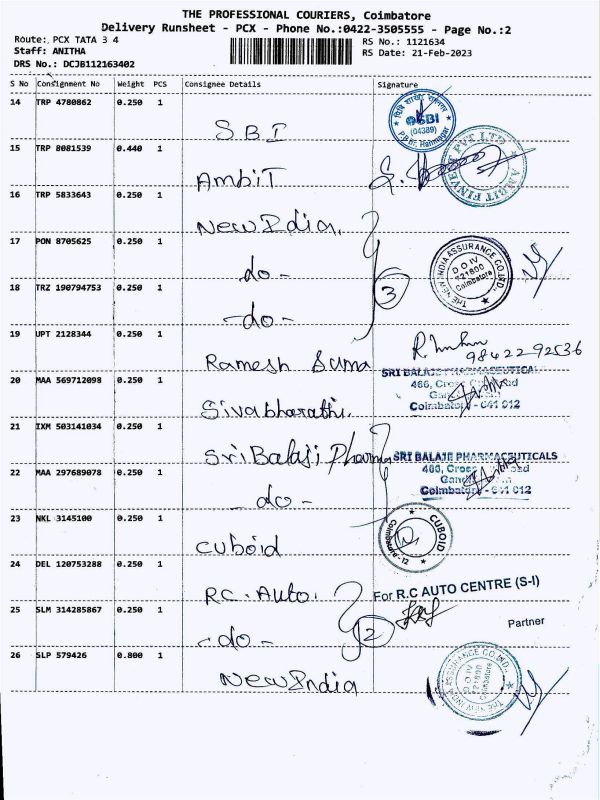 THE PROFESSIONAL COURIERS, Coimbatore
Delivery Runsheet - PCX - Phone No.:0422-3505555 - Page No.:2
Route: PCX TATA 3 4
RS No.: 1121634
Staff: ANITHA
RS Date: 21-Feb-2023
DRS No.: DCJB112163402
S No Consignment No Weight PCS Consignee Details Signature
14 TRP 4780862 0.250 1 SBI
SBI
(04389)
15 TRP 8081539 0.440 1 Ambit
AMBIT FINVEST PVT LTD
16 TRP 5833643 0.250 1 New India.
17 PON 8705625 0.250 1 -do-
THE NEW INDIA ASSURANCE CO.LTD.,
D O IV
721600
Coimbatore
3
18 TRZ 190794753 0.250 1 -do-
19 UPT 2128344 0.250 1 Ramesh Suma
9842292536
20 MAA 569712098 0.250 1 Sivabharathi.
SRI BALAJE PHARMACEUTICALS
466, Cross
Coimbatore - 641 012
21 IXM 503141034 0.250 1 Sri Balaji Pharma
SRI BALAJE PHARMACEUTICALS
22 MAA 297689078 0.250 1 -do-
466, Cross
Coimbatore - 641 012
23 NKL 3145100 0.250 1 Cuboid
CUBOID
Coimbatore-12
24 DEL 120753288 0.250 1 RC. Auto.
For R.C AUTO CENTRE (S-I)
25 SLM 314285867 0.250 1 -do-
2
Partner
26 SLP 579426 0.800 1 New India
THE NEW INDIA ASSURANCE CO.LTD.,
D O IV
721600
Coimbatore